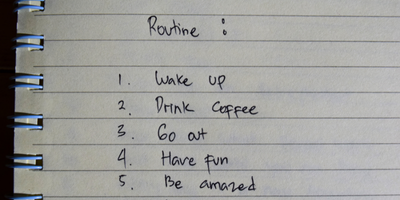 Routine :
1. Wake up
2. Drink Coffee
3. Go out
4. Have fun
5. Be amazed